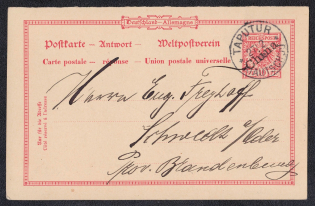 Deutschland – Allemagne.
Postkarte – Antwort – Weltpostverein
Carte postale – réponse – Union postale universelle
China
Nur für die Adresse
Côté réservé à l'adresse
Herrn Eug. Freyhoff
Schwedt a/Oder
Prov. Brandenburg